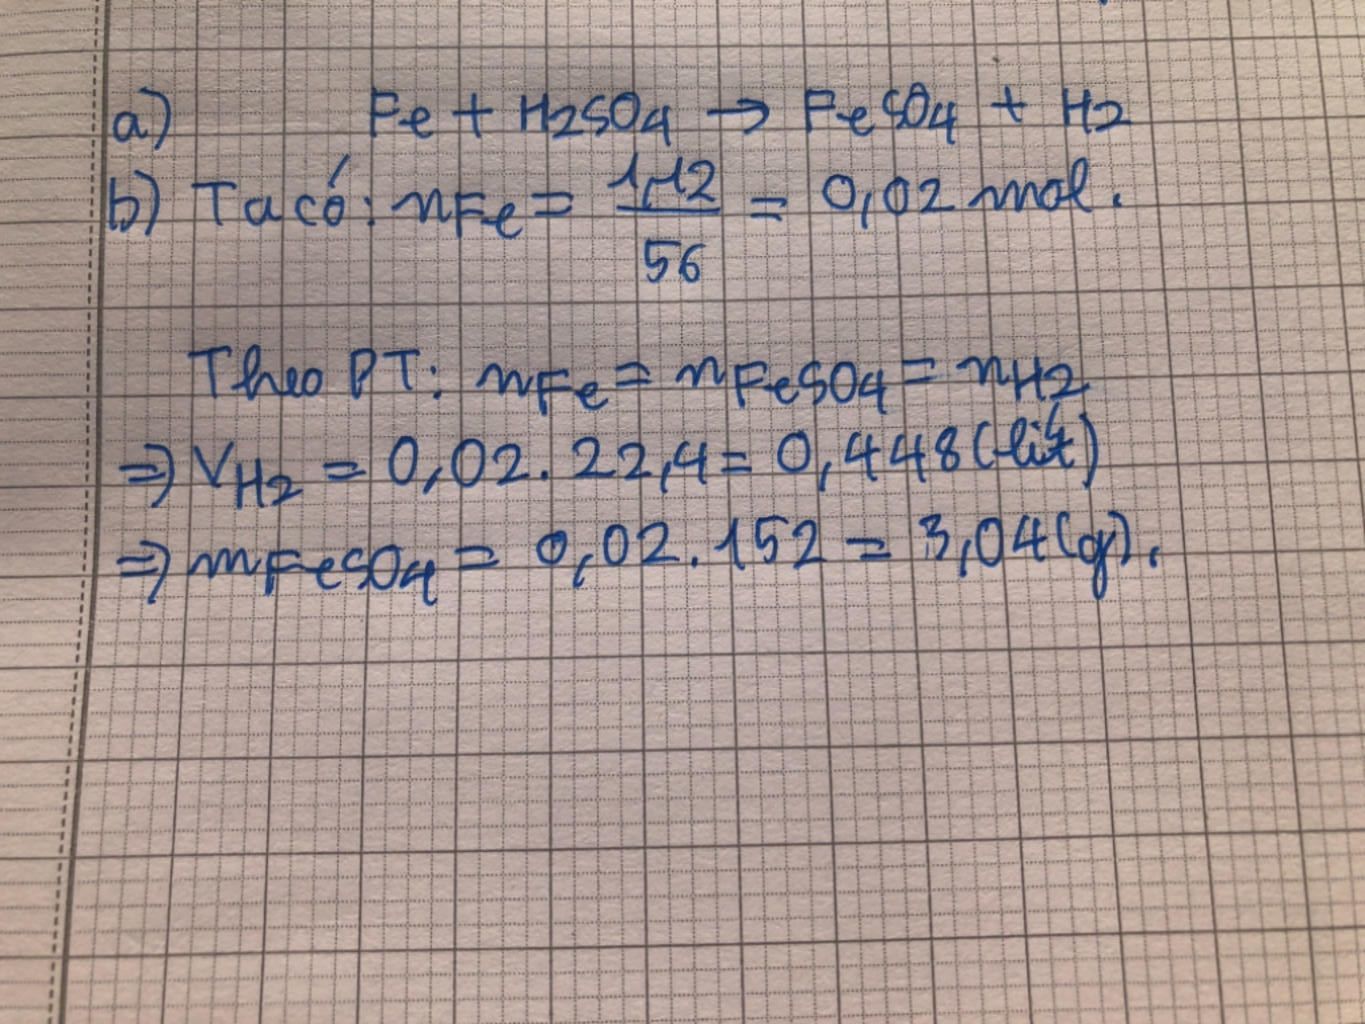 a) Fe + H2SO4 → FeSO4 + H2
b) Ta có: nFe = 1,12/56 = 0,02 mol.
Theo PT: nFe = nFeSO4 = nH2
=> VH2 = 0,02.22,4 = 0,448 (lít)
=> mFeSO4 = 0,02.152 = 3,04 (g).